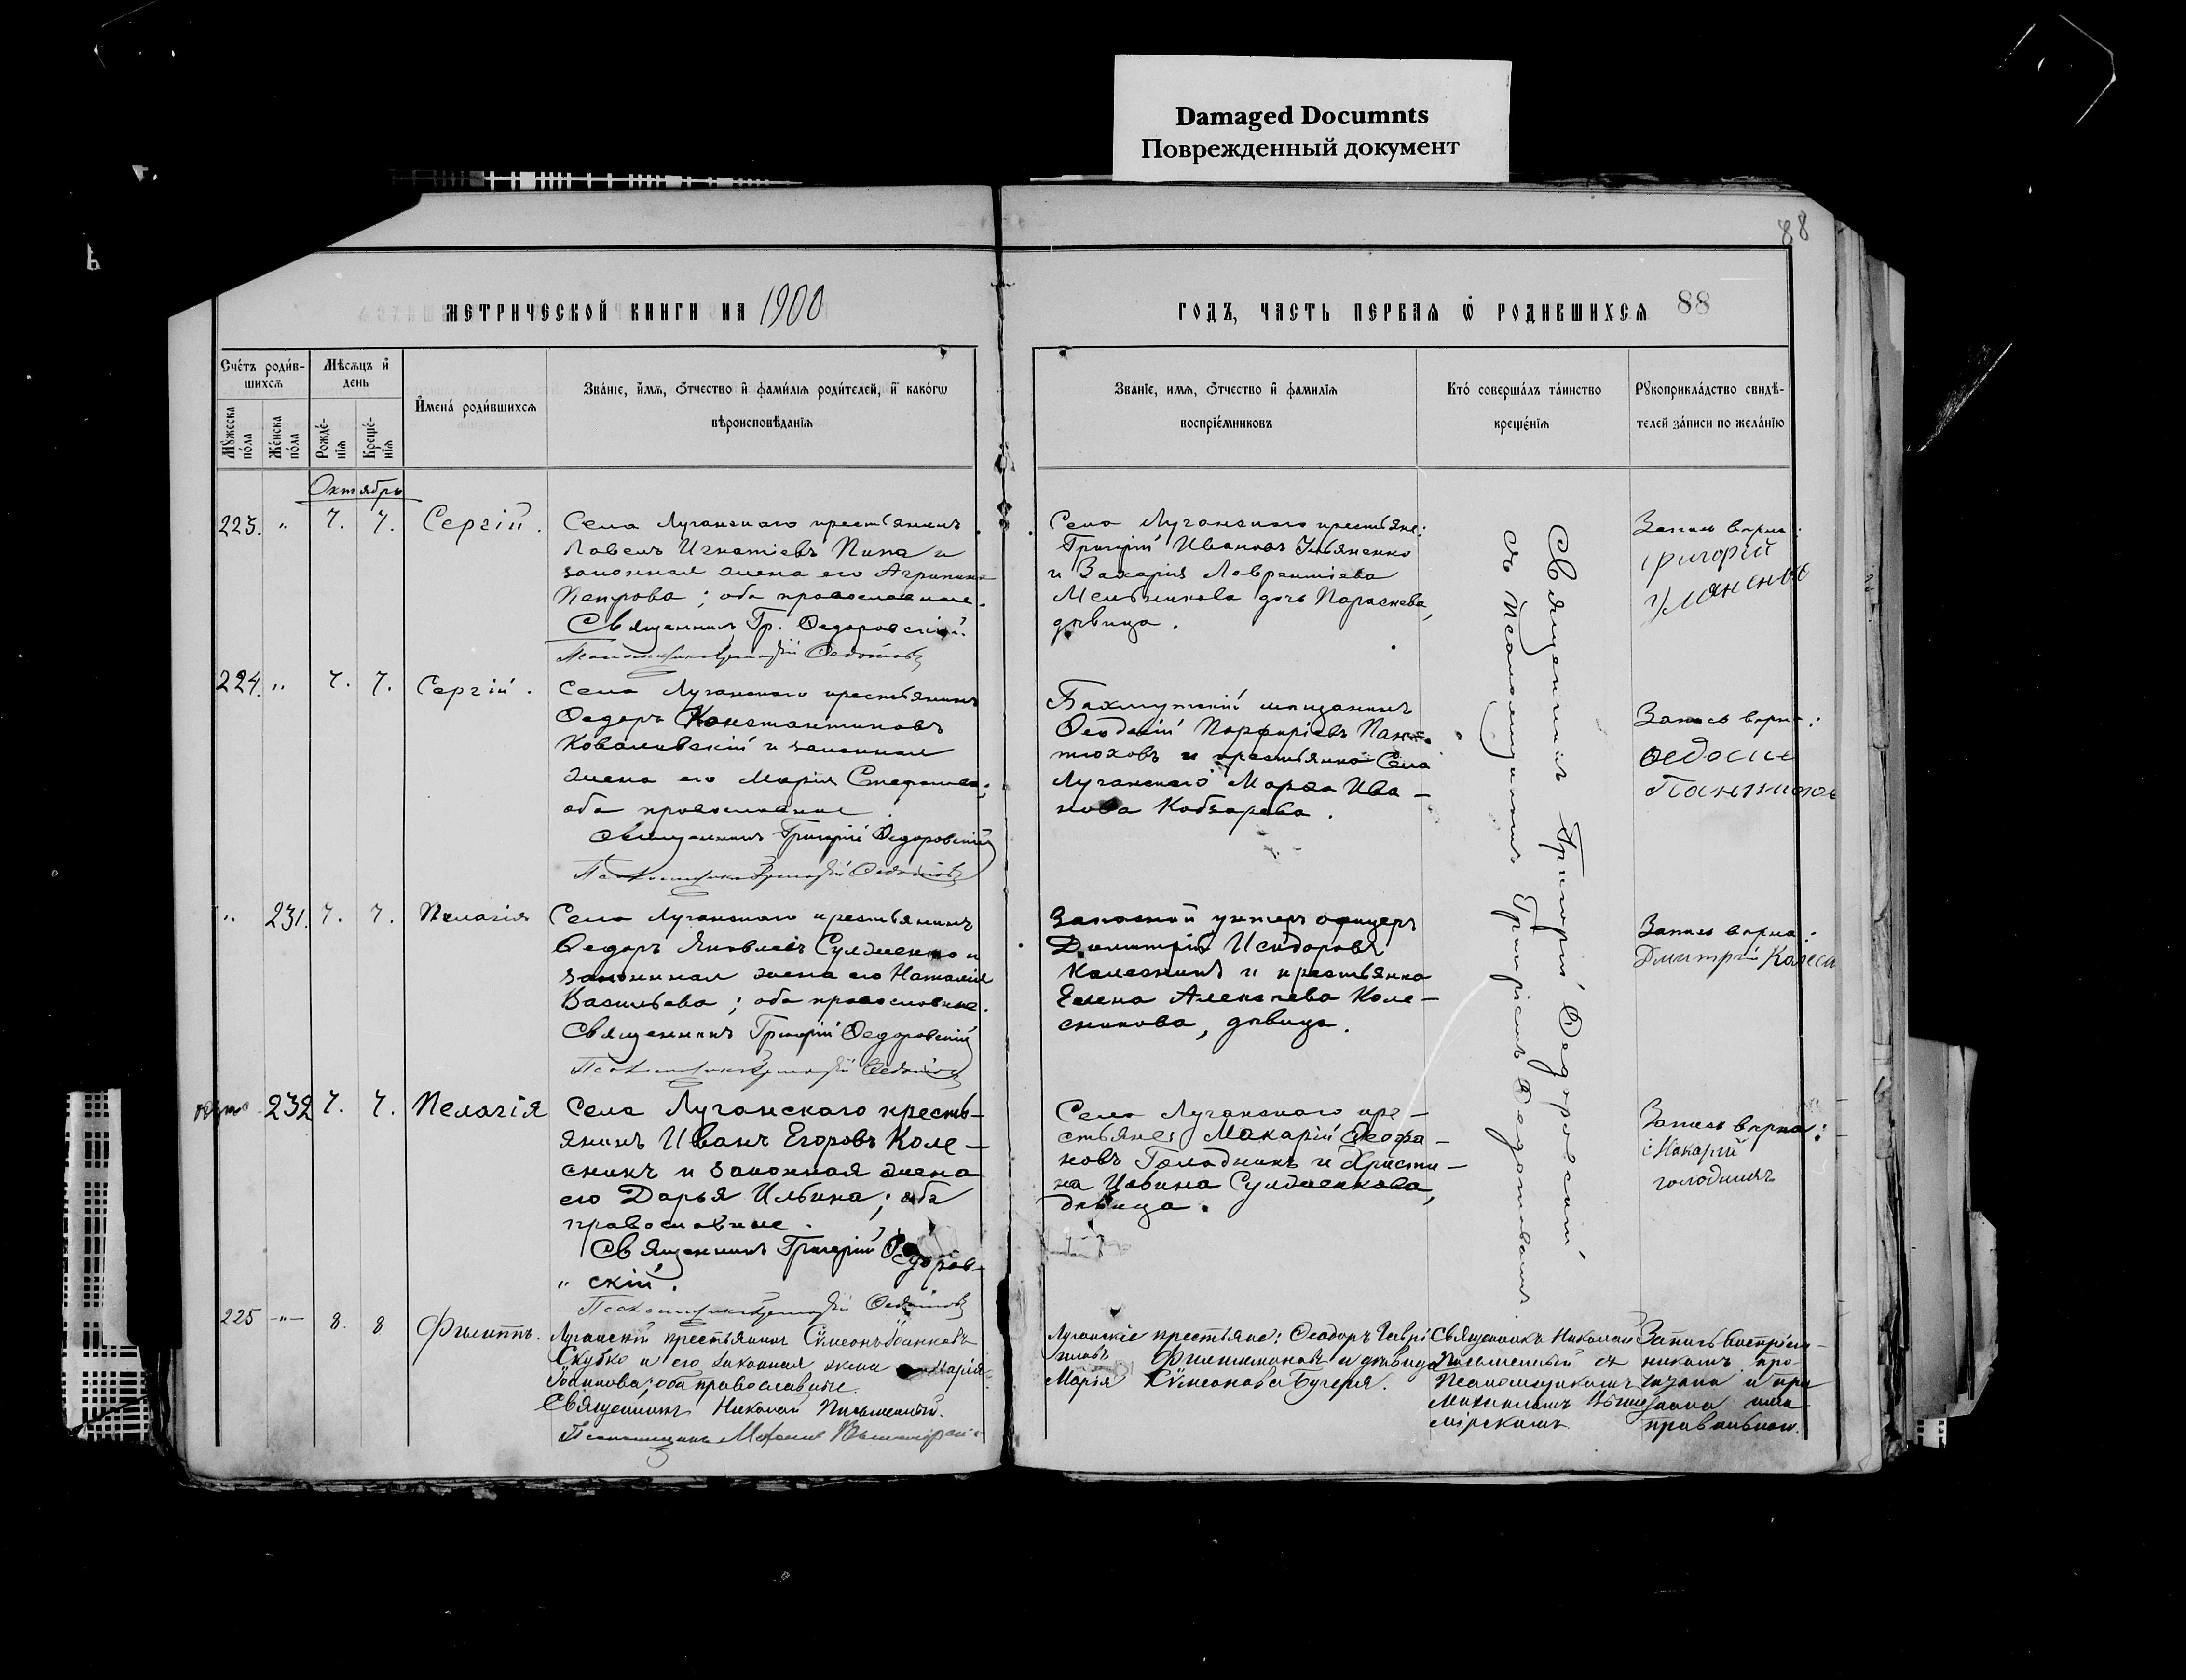 Damaged Documnts
Поврежденный документ
88
МЕТРИЧЕСКОЙ КНИГИ НА 1900
ГОДЪ, ЧАСТЬ ПЕРВАЯ Ѡ РОДИВШИХСЯ 88
Счетъ родив-
шихся
Мужеска
пола
Женска
пола
Мѣсяцъ и
день
Рожде-
нія
Креще-
нія
Имена родившихся
Званіе, имя, отчество и фамилія родителей, и какогѡ
вѣроисповѣданія
Званіе, имя, отчество и фамилія
воспріемниковъ
Кто совершалъ таинство
крещенія
Рукоприкладство свидѣ-
телей записи по желанію
Октябрь
223. " 7. 7. Сергій.
Села Луганскаго крестьянинъ
Павелъ Игнатіевъ Пипа и
законная жена его Агрипина
Петрова; оба православные.
Священникъ Гр. Ѳедоровскій.
Псаломщикъ Григорій Ѳедотовъ
Села Луганскаго крестьяне:
Григорій Ивановъ Ульяненко
и Захарія Лаврентіева
Мельникова дочь Параскева,
дѣвица.
Запись вѣрна:
григорій
Уляненко
224. " 7. 7. Сергій.
Села Луганскаго крестьянинъ
Ѳедоръ Константиновъ
Ковалевскій и законная
жена его Марія Стефанова;
оба православные.
Священникъ Григорій Ѳедоровскій
Псаломщикъ Григорій Ѳедотовъ
Бахмутскій мѣщанинъ
Ѳеодосій Порфиріевъ Пан-
тюховъ и крестьянка Села
Луганскаго Марѳа Ива-
нова Кобзарева.
Запись вѣрна:
Ѳедосие
" 231. 7. 7. Пелагія
Села Луганскаго крестьянинъ
Ѳедоръ Яковлевъ Сулженко и
законная жена его Наталія
Васильева; оба православные.
Священникъ Григорій Ѳедоровскій
Псаломщикъ Григорій Ѳедотовъ
Запасной унтеръ офицеръ
Димитрій Исидоровъ
Колесникъ и крестьянка
Елена Алексѣева Коле-
сникова, дѣвица.
Запись вѣрна:
Дмитрій Колесн
232 7. 7. Пелагія
Села Луганскаго кресть-
янинъ Иванъ Егоровъ Коле-
сникъ и законная жена
его Дарья Ильина; оба
православные.
Священникъ Григорій Ѳедоров-
" скій.
Псаломщикъ Григорій Ѳедотовъ
Села Луганскаго кре-
стьяне: Макарій Ѳеофа-
новъ Голодникъ и Христи-
на Савина Сулженкова,
дѣвица.
Запись вѣрна:
Макарій
голодникъ
Священникъ Григорій Ѳедоровскій
съ Псаломщикомъ Григоріемъ Ѳедотовымъ
225 -"- 8. 8 Филиппъ.
Луганскій крестьянинъ Сѵмеонъ Іоанновъ
Скубко и его законная жена Марія
Іоаннова; оба православные.
Священникъ Николай Письменный.
Псаломщикъ
Луганскіе крестьяне: Ѳеодоръ Гаврі
иловъ Филипионовъ и дѣвица
Марія Сѵмеонова Бугеря.
Священникъ Николай
Письменный съ
Псаломщикомъ
Михаиломъ Выше
мірскимъ
Запись воспріем-
никамъ про-
читана и при
знана ими
правильною.